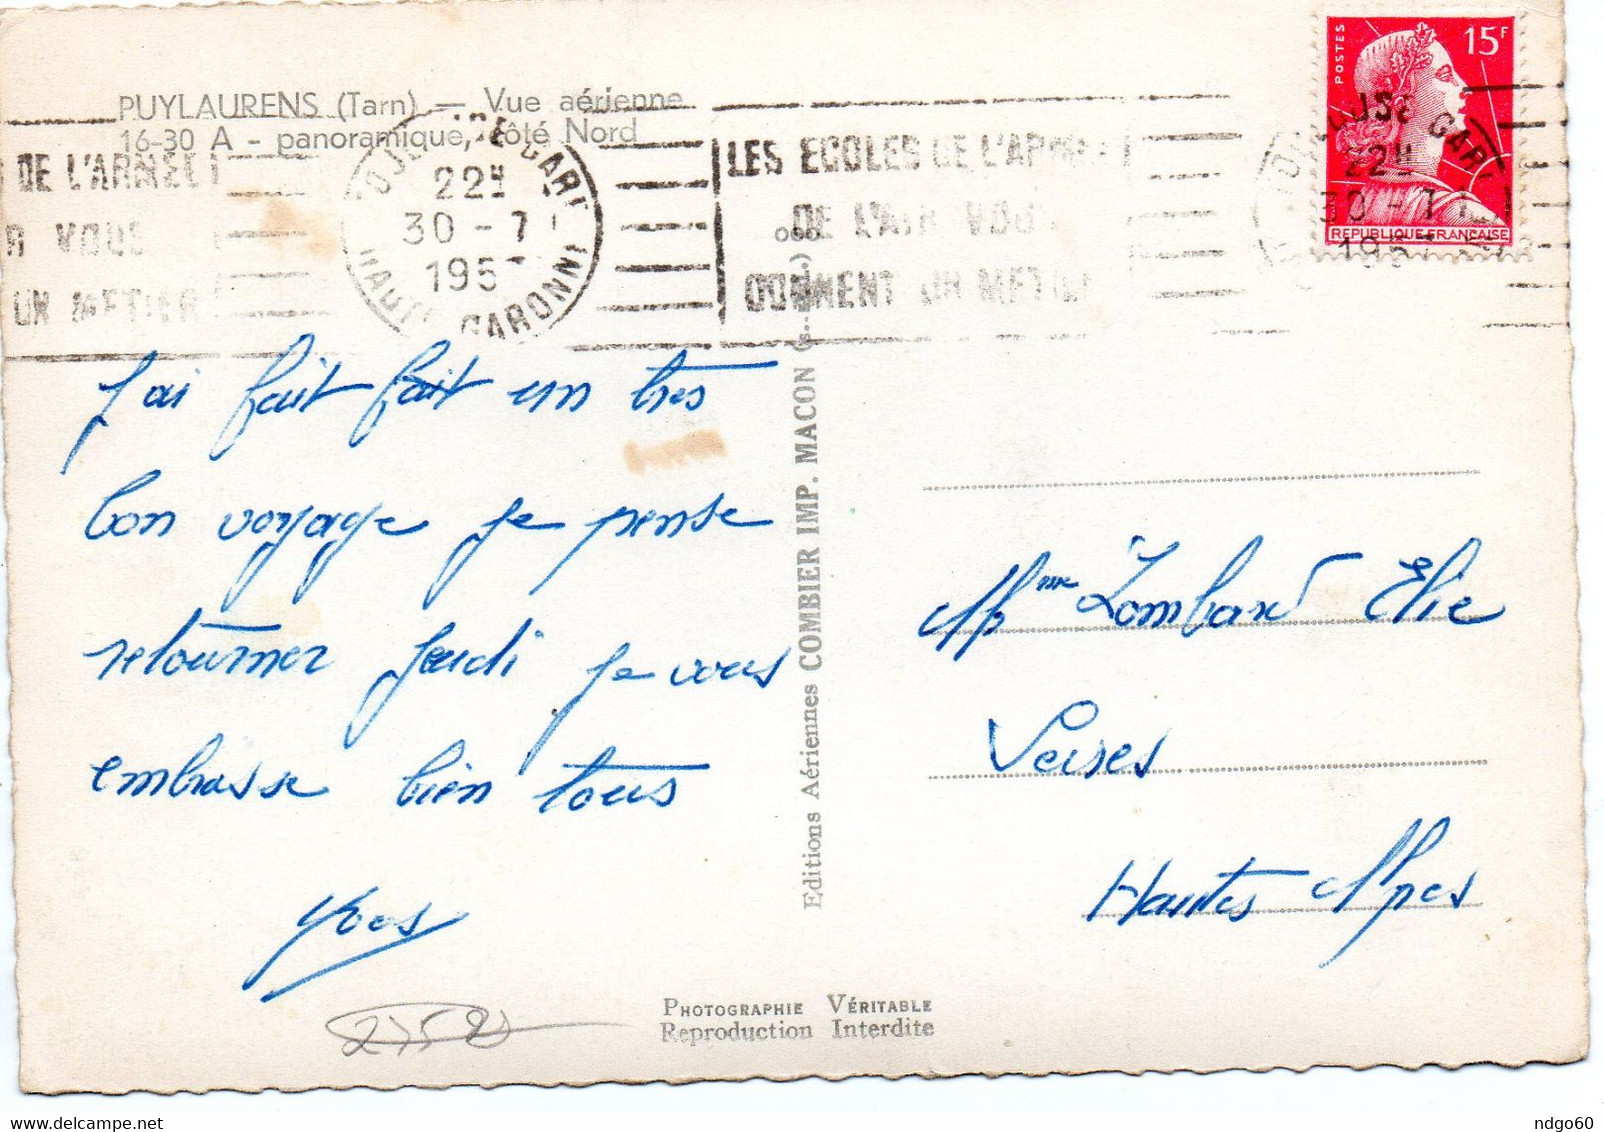 PUYLAURENS (Tarn) — Vue aérienne
16-30 A - panoramique, côté Nord
DE L'ARMEE
R VOUS
UN METIER
TOULOUSE GARE
22H
30 - 7 -
195
HAUTE GARONNE
LES ECOLES DE L'ARMEE
DE L'AIR VOUS
DONNENT UN METIER
TOULOUSE GARE
22H
30 - 7
195
POSTES
15F
REPUBLIQUE FRANÇAISE
J'ai fait fait un très
bon voyage je pense
retourner jeudi je vous
embrasse bien tous
Yves
Editions Aériennes COMBIER IMP. MACON
Mme Lombard Elie
Veines
Hautes Alpes
PHOTOGRAPHIE VÉRITABLE
Reproduction Interdite
ndgo60